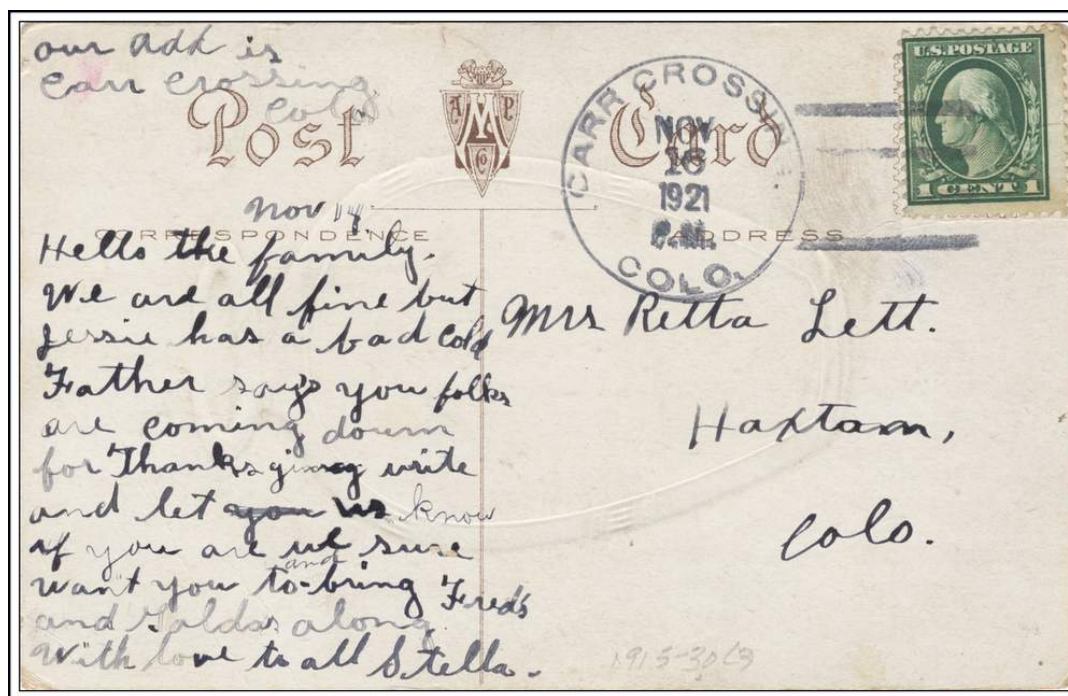 our add is
Carr Crossing
Colo
Post Card
A M P
Co
CARR CROSSING.
NOV
16
1921
P.M.
COLO.
U.S. POSTAGE
1 CENT 1
Nov
CORRESPONDENCE
ADDRESS
Hello the family.
We are all fine but
Jessie has a bad cold
Father says you folks
are coming down
for Thanksgiving write
and let you us know
if you are we sure
want you to and bring Fred's
and along
With love to all Stella.
Mrs Retta Lett.
Haxtam,
Colo.